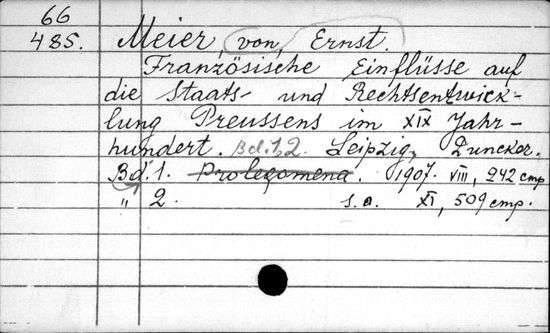 66
485.
Meier, von, Ernst.
Französische Einflüsse auf
die Staats- und Rechtsentwick-
lung Preussens im XIX Jahr-
hundert. Bd. 1, 2. Leipzig, Duncker.
Bd. 1. Prolegomena. 1907. VIII, 242 cmp
" 2. s.a. XI, 509 cmp.